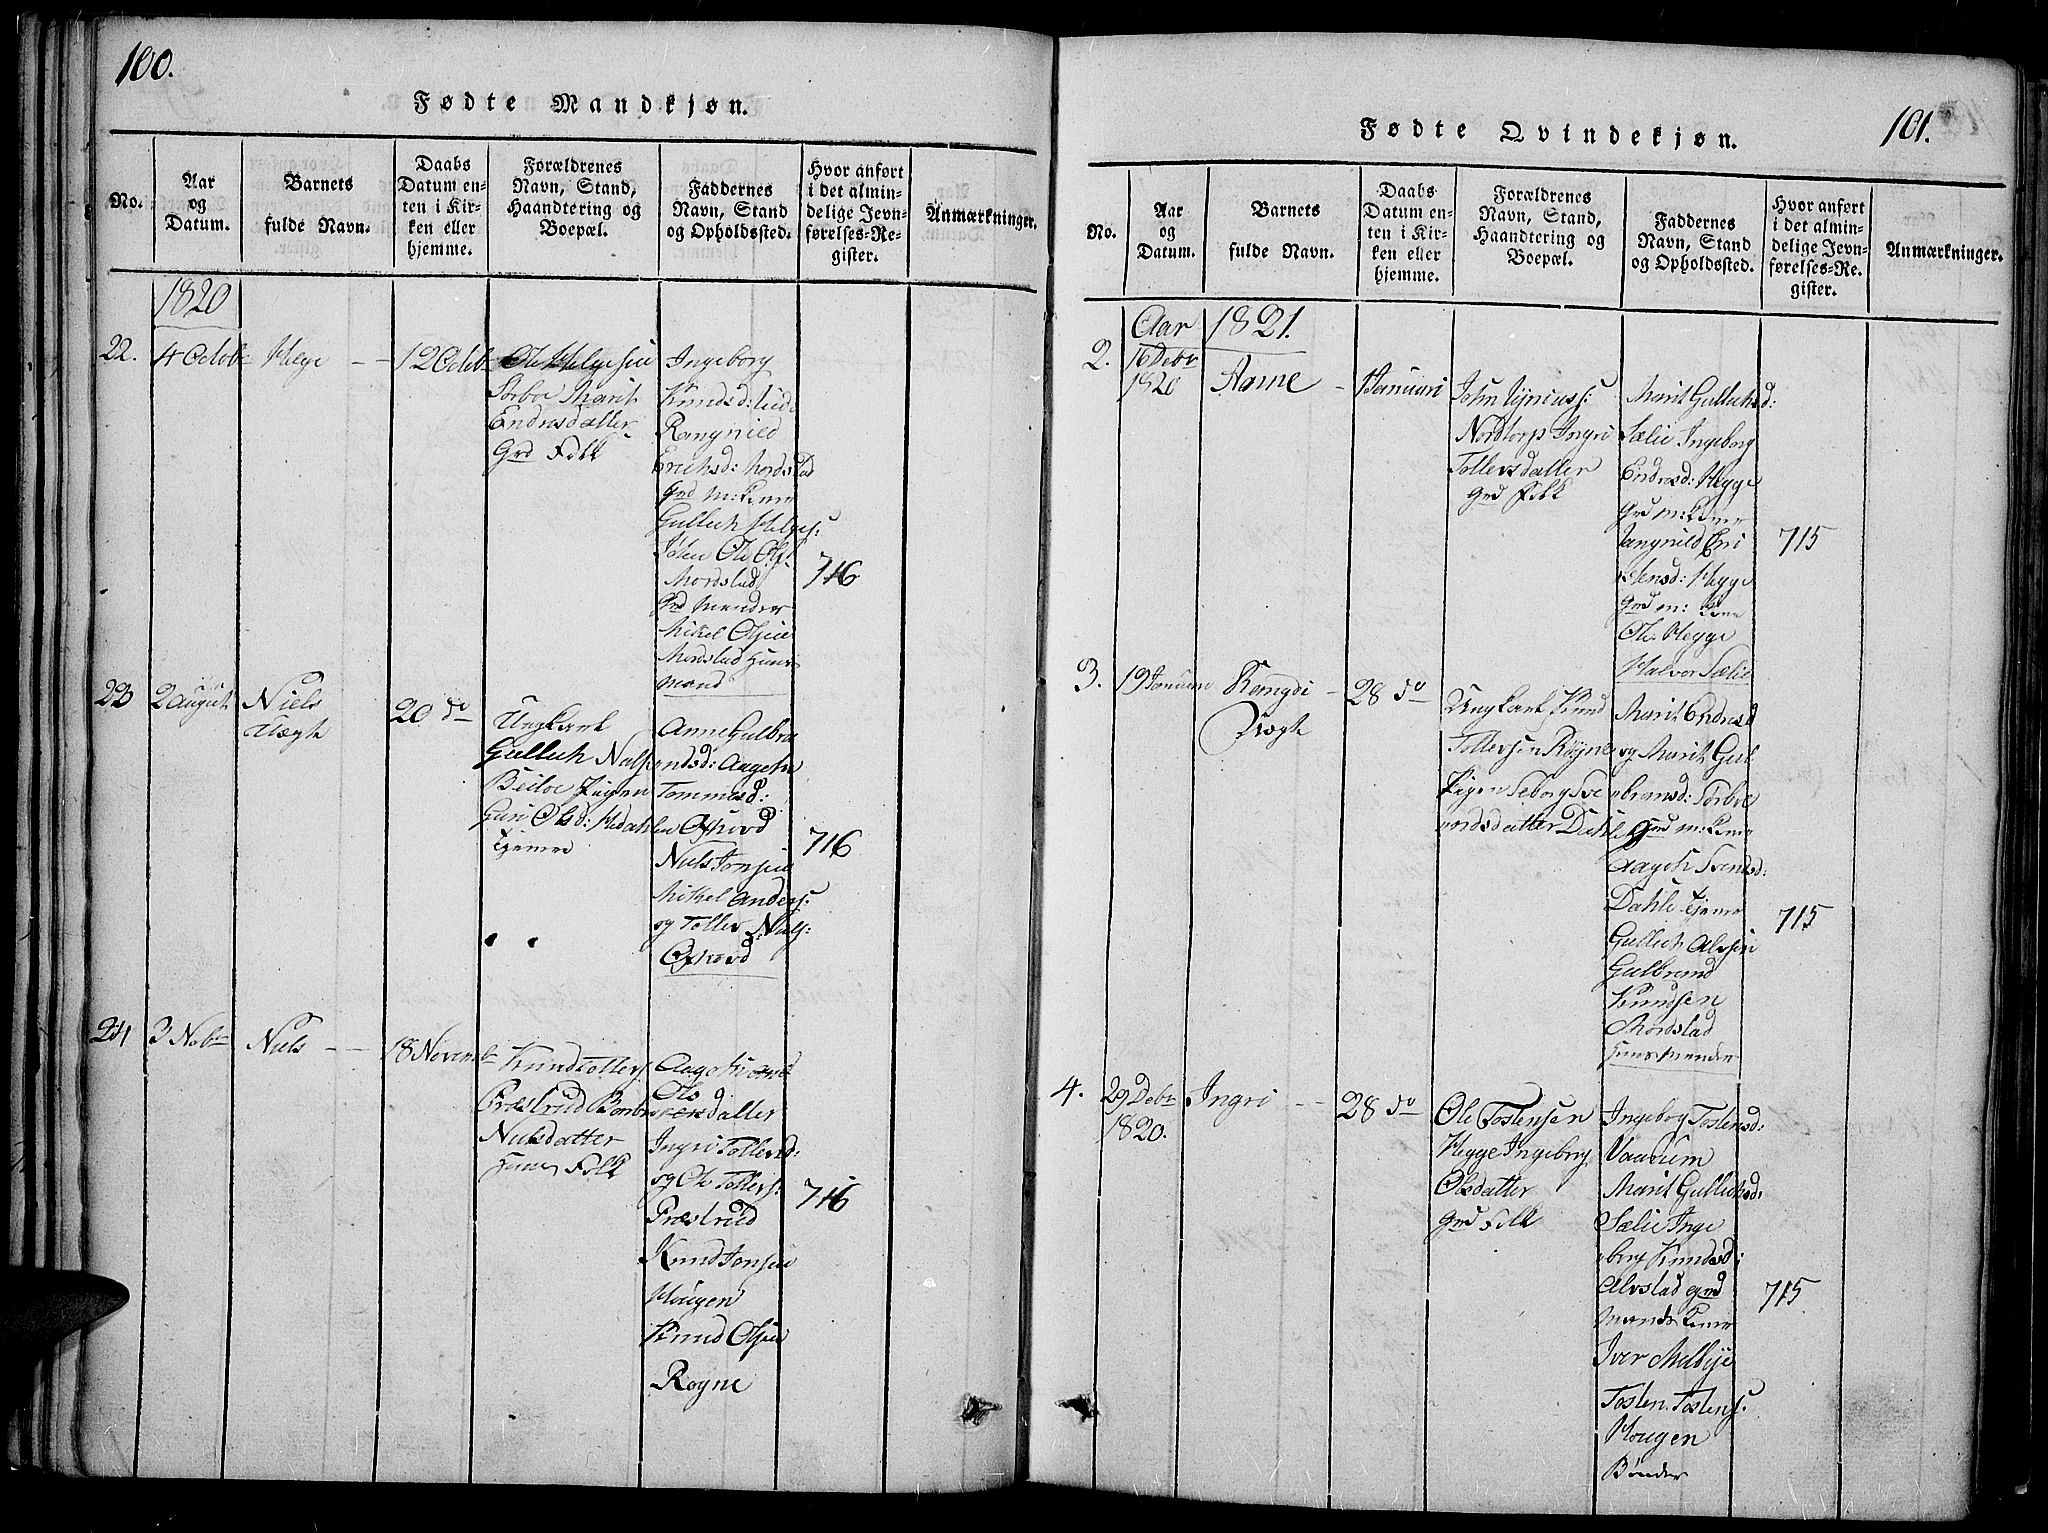 100.
Fødte Mandkjøn.
No.
Aar
og
Datum.
Barnets
fulde Navn.
Daabs
Datum en-
ten i Kir-
ken eller
hjemme.
Forældrenes
Navn, Stand,
Haandtering og
Boepæl.
Faddernes
Navn, Stand
og Opholdssted.
Hvor anført
i det almin-
delige Jevn-
førelses-Re-
gister.
Anmærkninger.
1820
22.
4 Octobr
Helge
12 Octobr
Ole Helgesen
Sorboe Marit
Endresdatter
Grd Folk
Ingeborg
Knudsd:
Rangnild
Erichsd: Mordstad
Grd m: Kone
Gullich Helges:
Ole Ols:
Mordstad
Grd Mænder
Mikel Olsen
Mordstad Huus
mand
716
23
2 August
Niels
Uægte
20 do
Ungkarl
Gullich Nils:
Beiloe Pigen
Guri Olsd: Hedahlen
Tjener
Anne Gulbra
ndsd: Aagoht
Tommesd:
Niels Jonsen
Mikel Anders:
og Toller Niels:
716
24
3 Nobr
Niels
18 Novembr
Knud Tollers:
Præstrud Barbro
Nielsdatter
Huus Folk
Aagoht
Ols
datter
Ingri Tollersd:
og Ole Tollers:
Præstrud
Knud Jonsen
Hougen
Knud Olsen
Rogne
716
101.
Fødte Qvindekjøn.
No.
Aar
og
Datum.
Barnets
fulde Navn.
Daabs
Datum en-
ten i Kir-
ken eller
hjemme.
Forældrenes
Navn, Stand,
Haandtering og
Boepæl.
Faddernes
Navn, Stand
og Opholdssted.
Hvor anført
i det almin-
delige Jevn-
førelses-Re-
gister.
Anmærkninger.
Aar 1821.
2.
16 Debr
1820
Anne
1 Januari
John
Nordtorp Ingri
Tollersdatter
Grd Folk
Marit Gullichsd:
Sælie Ingeborg
Endresd: Hegge
Grd m: Kone
Rangnild Eri
Hegge
Grd m: Kone
Ole Hegge
Halvor Sælie
715
3.
19 Januari
Rongdi
Uægte
28 do
Ungkarl Knud
Tollersen Rogne
Pigen Seborg Sve
nsdatter Dahle
Marit Endresd
og Marit Gul
ebransd: Sorboe
Grd m: Kone
Aagoht Svendsd:
Dahle Tjener
Gullich Alvsen
Gulbrand
Knudsen
Mordstad
Huusmænder
715
4.
29 Debr
1820.
Ingri
28 do
Ole Tostensen
Hegge Ingeborg
Olsdatter
Grd Folk
Ingeborg Tostensd:
Marit Gullichsd:
Sælie Inge
eborg Knudsd:
Alvstad Grd
mands Kone
Iver Melbye
Tosten Tostens:
Hougen
Bønder
715